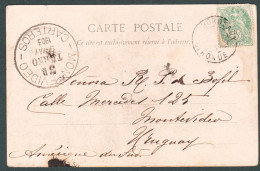 CARTE POSTALE
Ce côté est exclusivement réservé à l'adresse
MONTEVIDEO
CARTEROS
Señora R. P. de
Calle Mercedes 125
Montevideo
Uruguay
Amérique du Sud